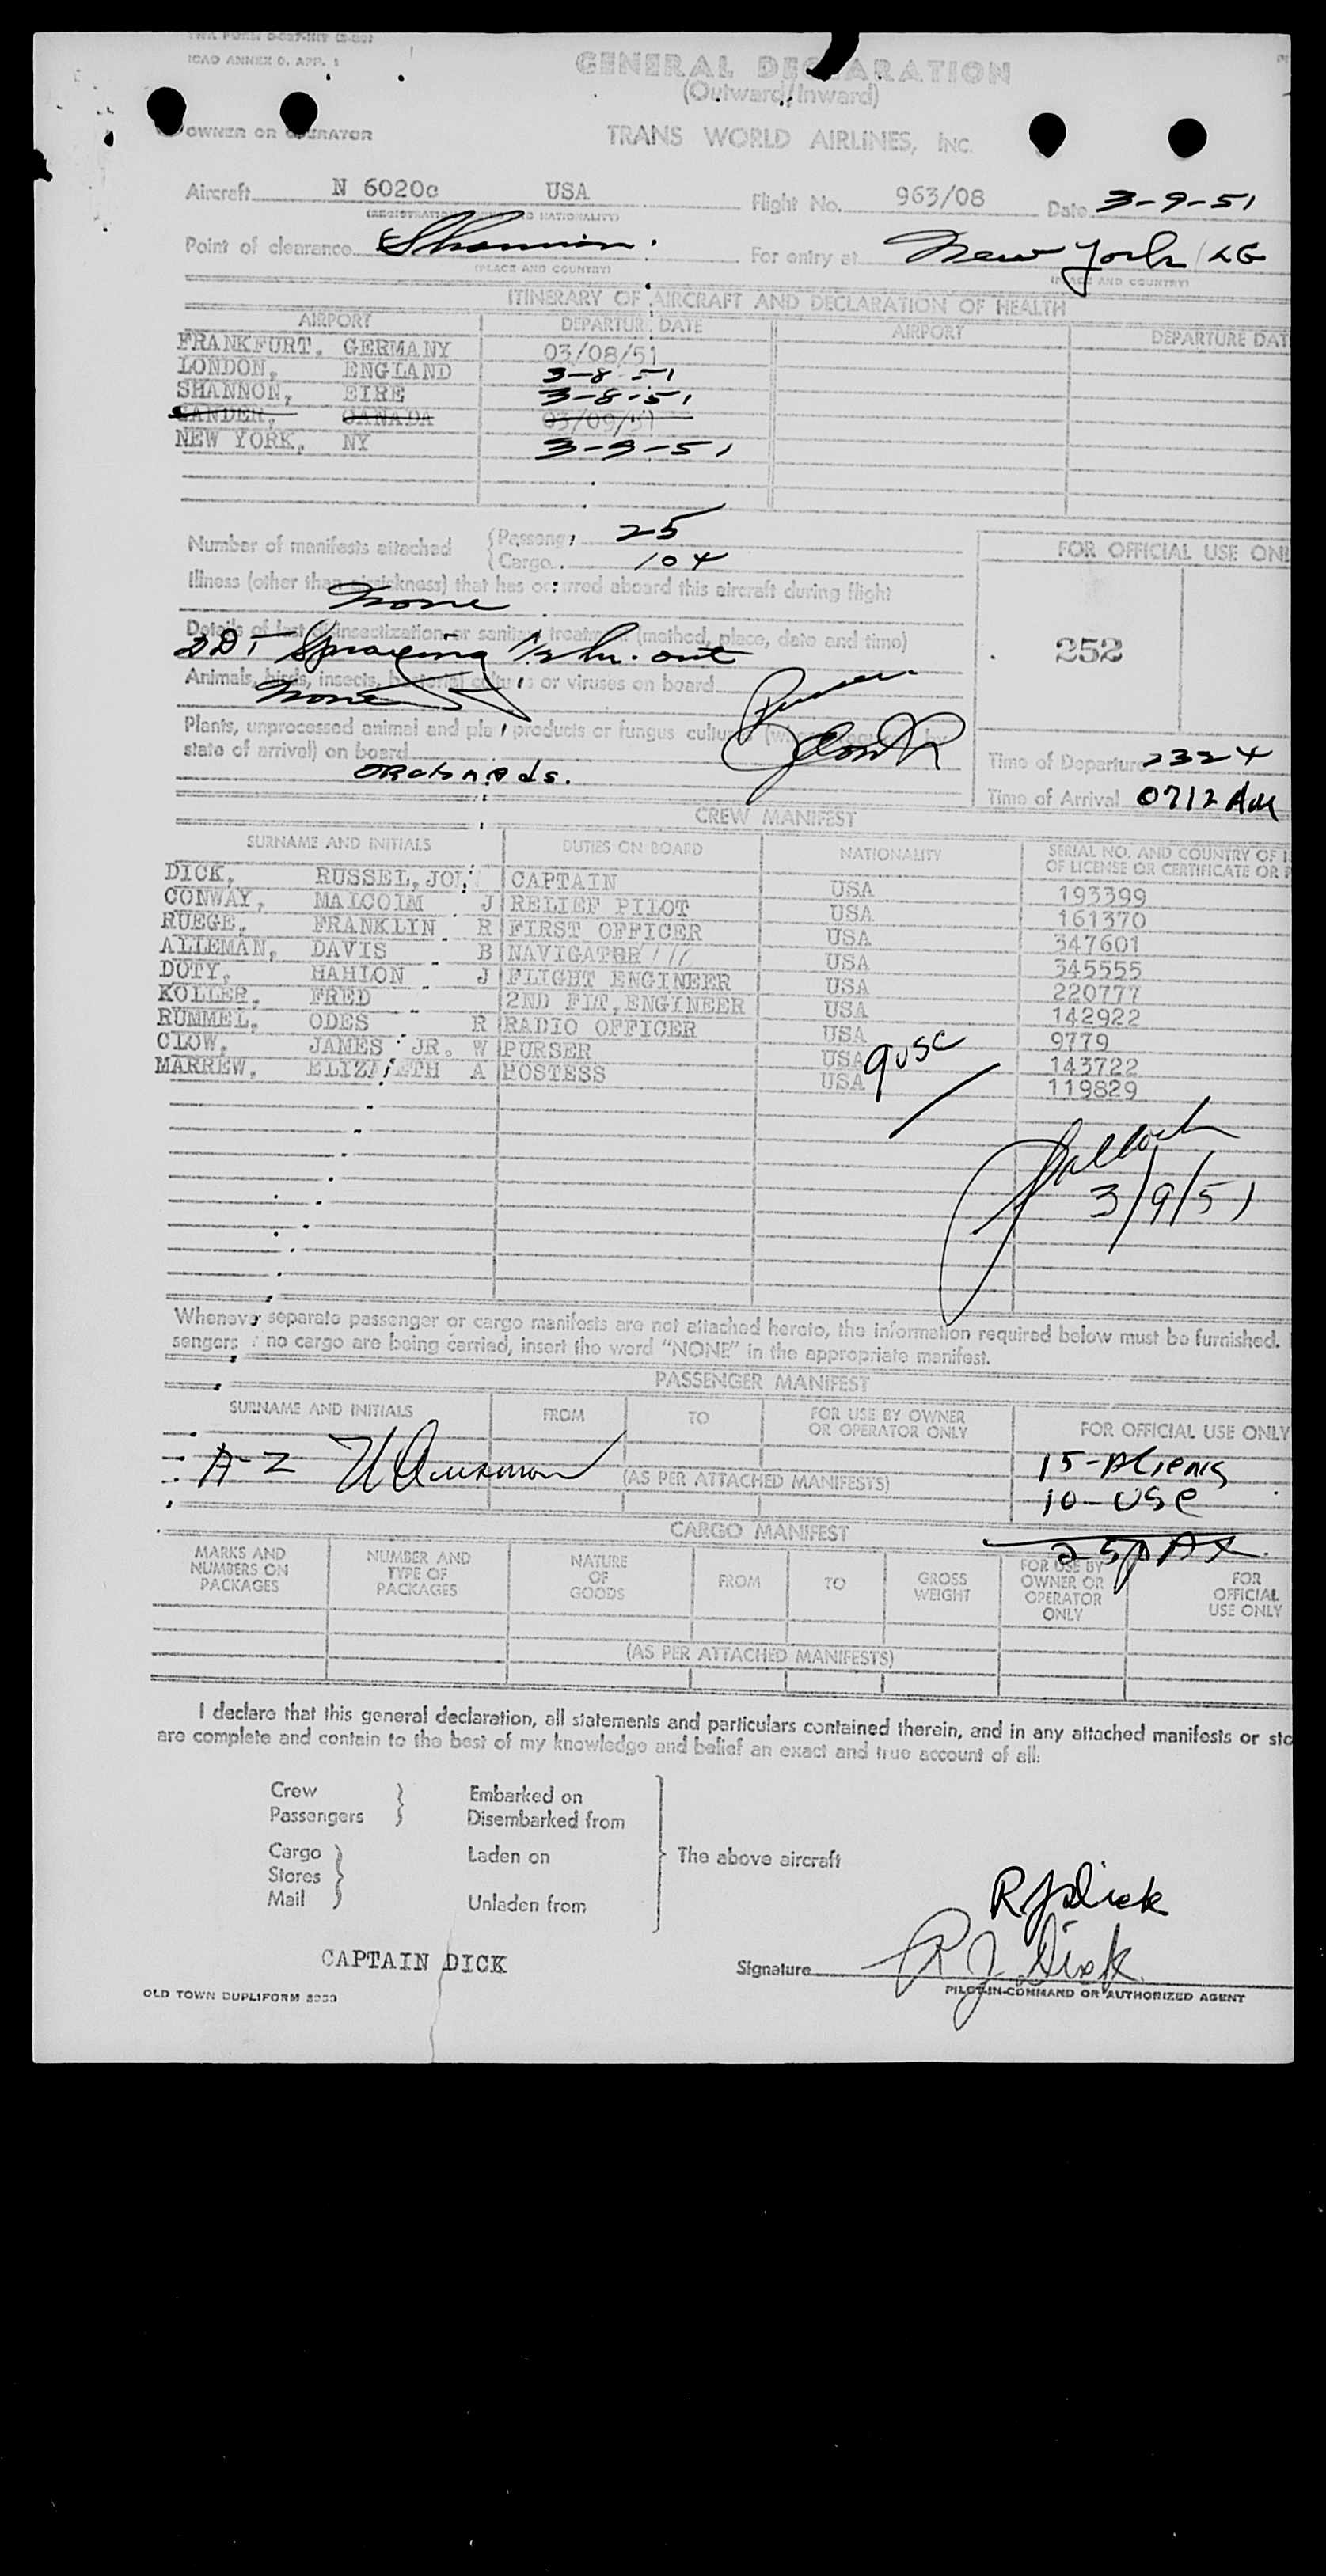 ICAO ANNEX 9, APP. 1
GENERAL DECLARATION
(Outward/Inward)
OWNER OR OPERATOR TRANS WORLD AIRLINES, INC.
Aircraft N 6020c USA Flight No. 963/08 Date 3-9-51
Point of clearance Shannon. For entry at New York/LG
(PLACE AND COUNTRY) (PLACE AND COUNTRY)
ITINERARY OF AIRCRAFT AND DECLARATION OF HEALTH
AIRPORT DEPARTURE DATE AIRPORT DEPARTURE DAT
FRANKFURT, GERMANY 03/08/51
LONDON, ENGLAND 3-8-51
SHANNON, EIRE 3-8-51
GANDER, CANADA 03/09/51
NEW YORK, NY 3-9-51
Number of manifests attached
Passeng 25
Cargo 104
FOR OFFICIAL USE ONL
Illness (other than airsickness) that has occurred aboard this aircraft during flight
None
252
Details of last disinsectization or sanitary treatment (method, place, date and time)
DDT Spraying 1/2 hr. out
Animals, birds, insects, bacterial cultures or viruses on board
None
Purser
Plants, unprocessed animal and plant products or fungus cultures
state of arrival) on board
Time of Departure 2324
Time of Arrival 0712 AM
CREW MANIFEST
SURNAME AND INITIALS DUTIES ON BOARD NATIONALITY SERIAL NO. AND COUNTRY OF
OF LICENSE OR CERTIFICATE OR
DICK, RUSSEL, JO CAPTAIN USA 193399
CONWAY, MALCOLM J RELIEF PILOT USA 161370
RUEGE, FRANKLIN R FIRST OFFICER USA 347601
ALLEMAN, DAVIS B NAVIGATOR USA 345555
DOTY, MAHLON J FLIGHT ENGINEER USA 220777
KOLLER, FRED 2ND FLT.ENGINEER USA 142922
RUMMEL, ODES R RADIO OFFICER USA 9779
CLOW, JAMES JR. W PURSER USA 143722
MARREW, ELIZABETH A HOSTESS USA 119829
9 USC
3/9/51
Whenever separate passenger or cargo manifests are not attached hereto, the information required below must be furnished.
sengers no cargo are being carried, insert the word "NONE" in the appropriate manifest.
PASSENGER MANIFEST
SURNAME AND INITIALS FROM TO FOR USE BY OWNER OR OPERATOR ONLY FOR OFFICIAL USE ONLY
A-Z (AS PER ATTACHED MANIFESTS)
15-Aliens
10-USC
25 PAX.
CARGO MANIFEST
MARKS AND NUMBERS ON PACKAGES NUMBER AND TYPE OF PACKAGES NATURE OF GOODS FROM TO GROSS WEIGHT FOR USE BY OWNER OR OPERATOR ONLY FOR OFFICIAL USE ONLY
(AS PER ATTACHED MANIFESTS)
I declare that this general declaration, all statements and particulars contained therein, and in any attached manifests or sto
are complete and contain to the best of my knowledge and belief an exact and true account of all:
Crew Embarked on
Passengers Disembarked from
Cargo Laden on The above aircraft
Stores
Mail Unladen from
R J Dick
CAPTAIN DICK Signature R J. Dick
PILOT-IN-COMMAND OR AUTHORIZED AGENT
OLD TOWN DUPLIFORM